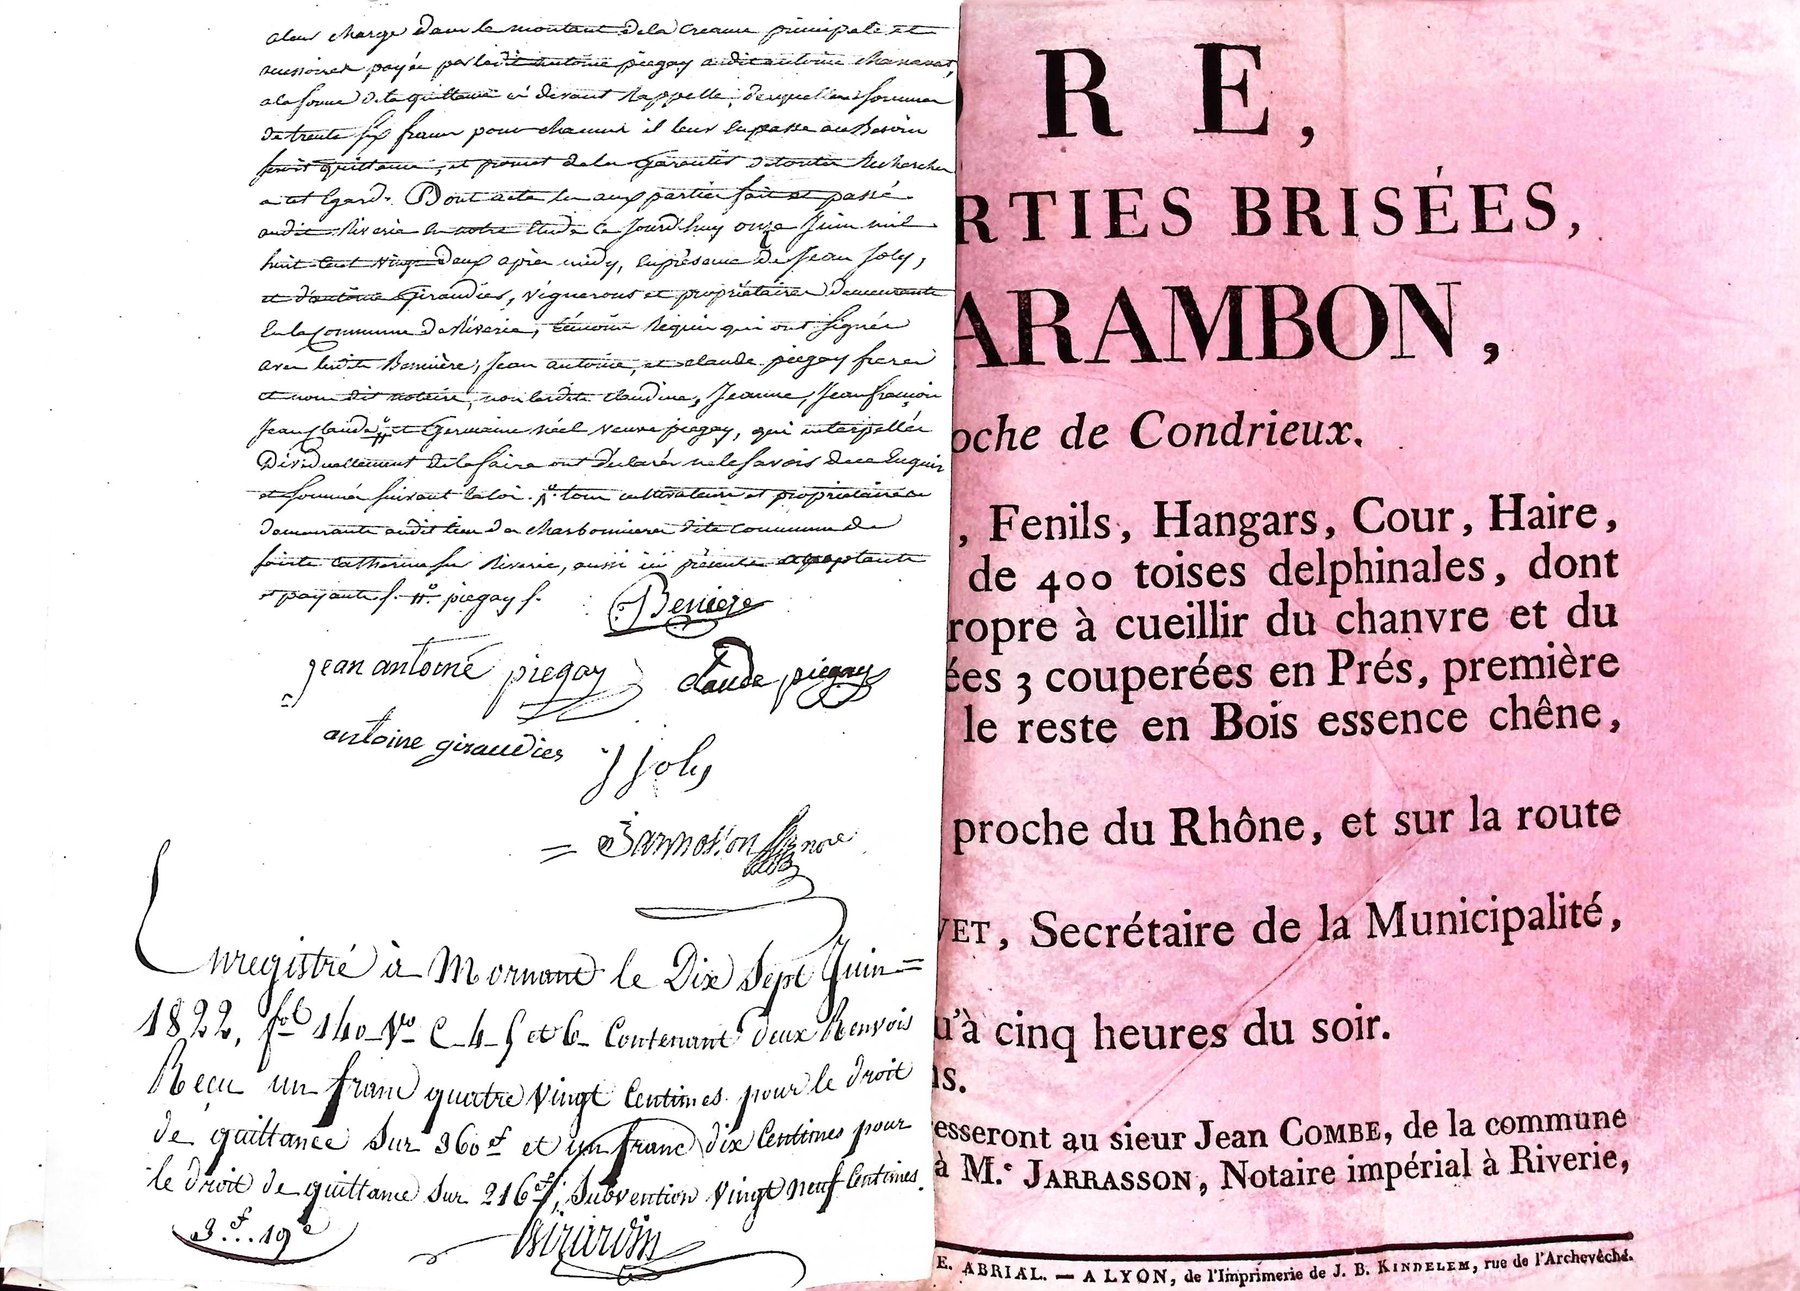 a leur charge dans le montant de la creance principale et
accessoires payée par ledit antoine piegay audit antoine
a la somme de la quittance ci devant Rappellé, desquelles sommes
de trente six francs pour chacune il leur en passe au Besoin
quittance, et promet de la Garantir de toutes Recherches
a cet Egard. Dont acte lu aux parties fait et passé
audit Riverie en notre Etude ce Jourd'huy onze Juin mil
huit Cent vingt Deux après midy, en présence de Jean Joly,
et d'antoine Giraudier, vignerons et propriétaires demeurants
En la Commune de Riverie, témoins Requis qui ont signés
avec ledit Bernière, Jean antoine, et claude piegay freres
et nous dit notaire, non lesdits claudine, Jeanne, Jean françois
Jean Claude et Germaine veuve piegay, qui interpellés
Dividuellement de le faire ont déclarés ne le Savoir de ce Enquis
et Sommés Suivant la loi. tous cultivateurs et propriétaires
demeurants audit lieu de Charbonnieres dite commune de
sainte Catherine sur Riverie, aussi ici présents acceptants
et payants piegay
jean antoine piegay claude piegay
antoine giraudier J Joly
Jarrosson nore
Enregistré à Mornant le Dix Sept Juin
1822, fol 140 Vo C 4 5 et 6 Contenant deux Renvois
Reçu un franc quatre vingt Centimes pour le droit
de quittance Sur 360f et un franc dix Centimes pour
le droit de quittance Sur 216f, Subvention vingt neuf Centimes.
3f..19c
Girardin
RE,
RTIES BRISÉES,
ARAMBON,
oche de Condrieux.
, Fenils, Hangars, Cour, Haire,
de 400 toises delphinales, dont
ropre à cueillir du chanvre et du
ées 3 couperées en Prés, première
le reste en Bois essence chêne,
proche du Rhône, et sur la route
VET, Secrétaire de la Municipalité,
u'à cinq heures du soir.
ns.
esseront au sieur Jean COMBE, de la commune
à M.e JARRASSON, Notaire impérial à Riverie,
E. ABRIAL. — A LYON, de l'Imprimerie de J. B. KINDELEM, rue de l'Archevêché.